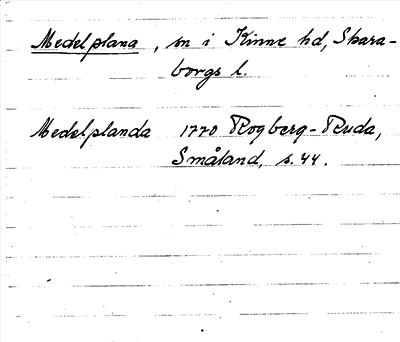 Medelplana, sn i Kinne hd, Skara-
borgs l.
Medelplanda 1770 Rogberg-Ruda,
Småland, s. 44.